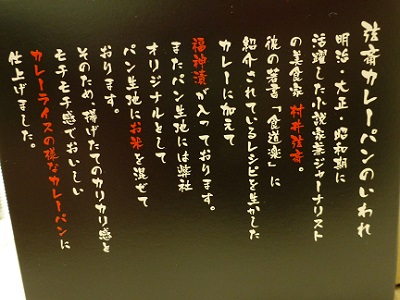 弦斎カレーパンのいわれ
明治・大正・昭和期に
活躍した小説家兼ジャーナリスト
の美食家 村井弦斎。
彼の著書「食道楽」に
紹介されているレシピを生かした
カレーに加えて
福神漬が入っております。
またパン生地には弊社
オリジナルとして
パン生地にお米を混ぜて
おります。
そのため、揚げたてのカリカリ感と
モチモチ感でおいしい
カレーライスの様なカレーパンに
仕上げました。